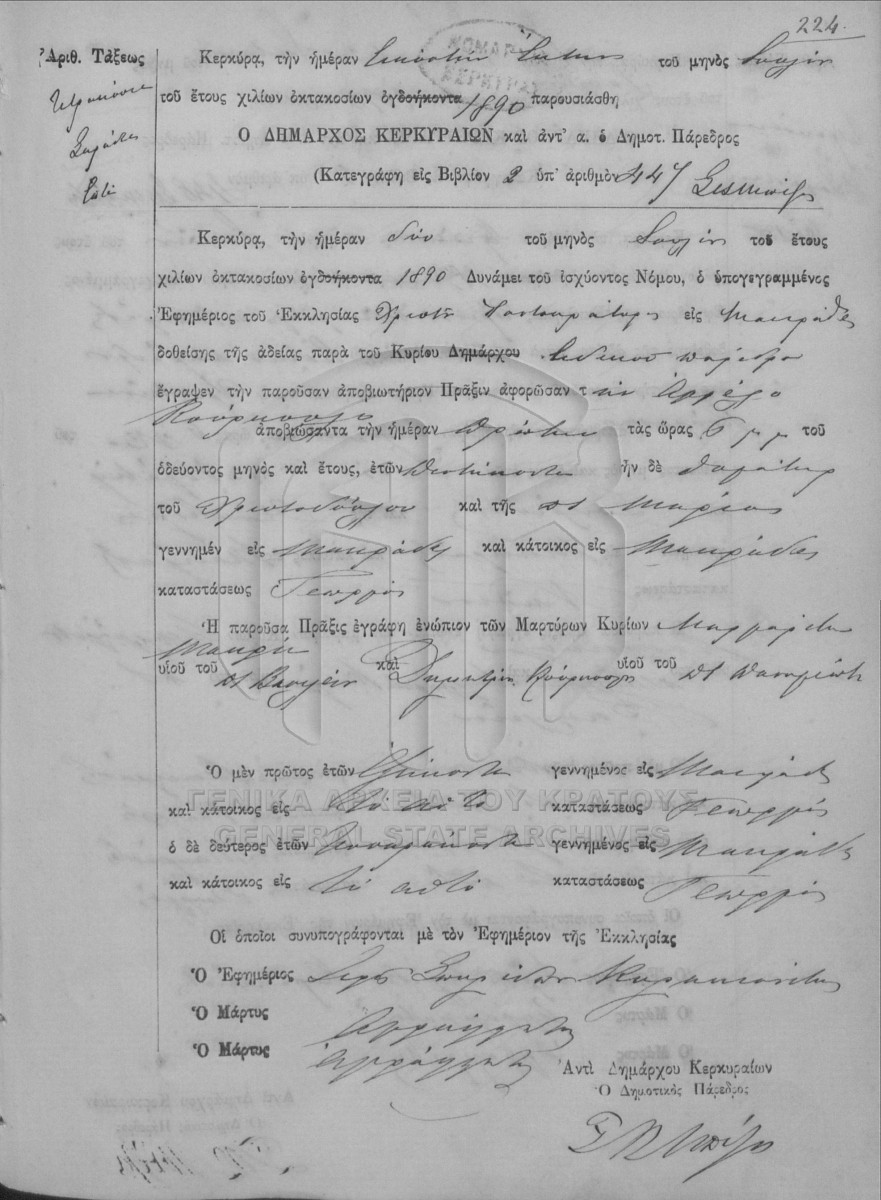 224.
Ἀριθ. Τάξεως
Κερκύρα, τὴν ἡμέραν Εἰκοστὴν τοῦ μηνὸς Ἰουλίου
τοῦ ἔτους χιλίων ὀκτακοσίων ὀγδοήκοντα 1890 παρουσιάσθη
Ο ΔΗΜΑΡΧΟΣ ΚΕΡΚΥΡΑΙΩΝ καὶ ἀντ' α. ὁ Δημοτ. Πάρεδρος
(Κατεγράφη εἰς Βιβλίον 2 ὑπ' ἀριθμὸν 447
Κερκύρα, τὴν ἡμέραν δύο τοῦ μηνὸς Ἰουλίου τοῦ ἔτους
χιλίων ὀκτακοσίων ὀγδοήκοντα 1890 Δυνάμει τοῦ ἰσχύοντος Νόμου, ὁ ὑπογεγραμμένος
Ἐφημέριος τοῦ Ἐκκλησίας Χριστοῦ Παντοκράτορος εἰς Μακράδες
δοθείσης τῆς ἀδείας παρὰ τοῦ Κυρίου Δημάρχου εἰδικοῦ παρέδρου
ἔγραψεν τὴν παροῦσαν ἀποβιωτήριον Πρᾶξιν ἀφορῶσαν τ
ἀποβιώσαντα τὴν ἡμέραν πρώτην τὰς ὥρας 6 μ μ τοῦ
ὁδεύοντος μηνὸς καὶ ἔτους, ἐτῶν ἦν δὲ θυγάτηρ
τοῦ Χριστοδούλου καὶ τῆς Μαρίας
γεννημέν εἰς Μακράδες καὶ κάτοικος εἰς Μακράδες
καταστάσεως Γεωργός
Ἡ παροῦσα Πρᾶξις ἐγράφη ἐνώπιον τῶν Μαρτύρων Κυρίων
Μακρῆ
υἱοῦ τοῦ πτ Βασιλείου καὶ Δημητρίου υἱοῦ τοῦ πτ Παναγιώτη
Ὁ μὲν πρῶτος ἐτῶν ἑξήκοντα γεννημένος εἰς Μακράδες
καὶ κάτοικος εἰς τὸ αὐτό καταστάσεως Γεωργός
ὁ δὲ δεύτερος ἐτῶν Τεσσαράκοντα γεννημένος εἰς Μακράδες
καὶ κάτοικος εἰς τὸ αὐτό καταστάσεως Γεωργός
Οἱ ὁποῖοι συνυπογράφονται μὲ τὸν Ἐφημέριον τῆς Ἐκκλησίας
Ὁ Ἐφημέριος Ἱερεὺς Σπυρίδων
Ὁ Μάρτυς ἀγράμματος
Ὁ Μάρτυς ἀγράμματος
Ἀντὶ Δημάρχου Κερκυραίων
Ὁ Δημοτικὸς Πάρεδρος
ΓΕΝΙΚΑ ΑΡΧΕΙΑ ΤΟΥ ΚΡΑΤΟΥΣ
GENERAL STATE ARCHIVES